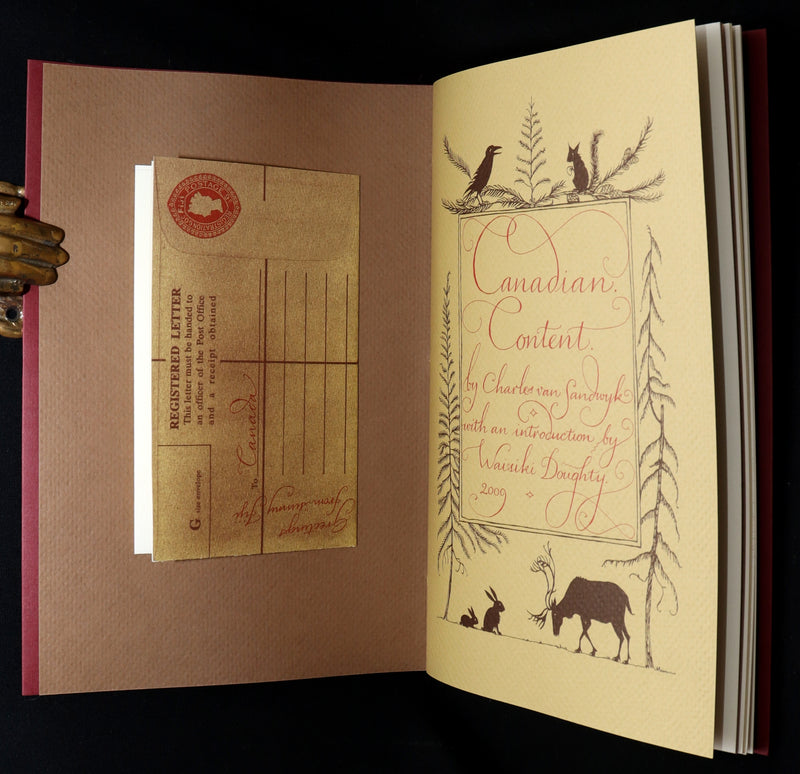 POSTAGE
REGISTRATION
REGISTERED LETTER
This letter must be handed to
an officer of the Post Office
and a receipt obtained
G size envelope
To Canada
Greetings
from sunny Fiji
Canadian.
Content.
by Charles van Sandwyk
with an introduction by
Waisiki Doughty.
2009